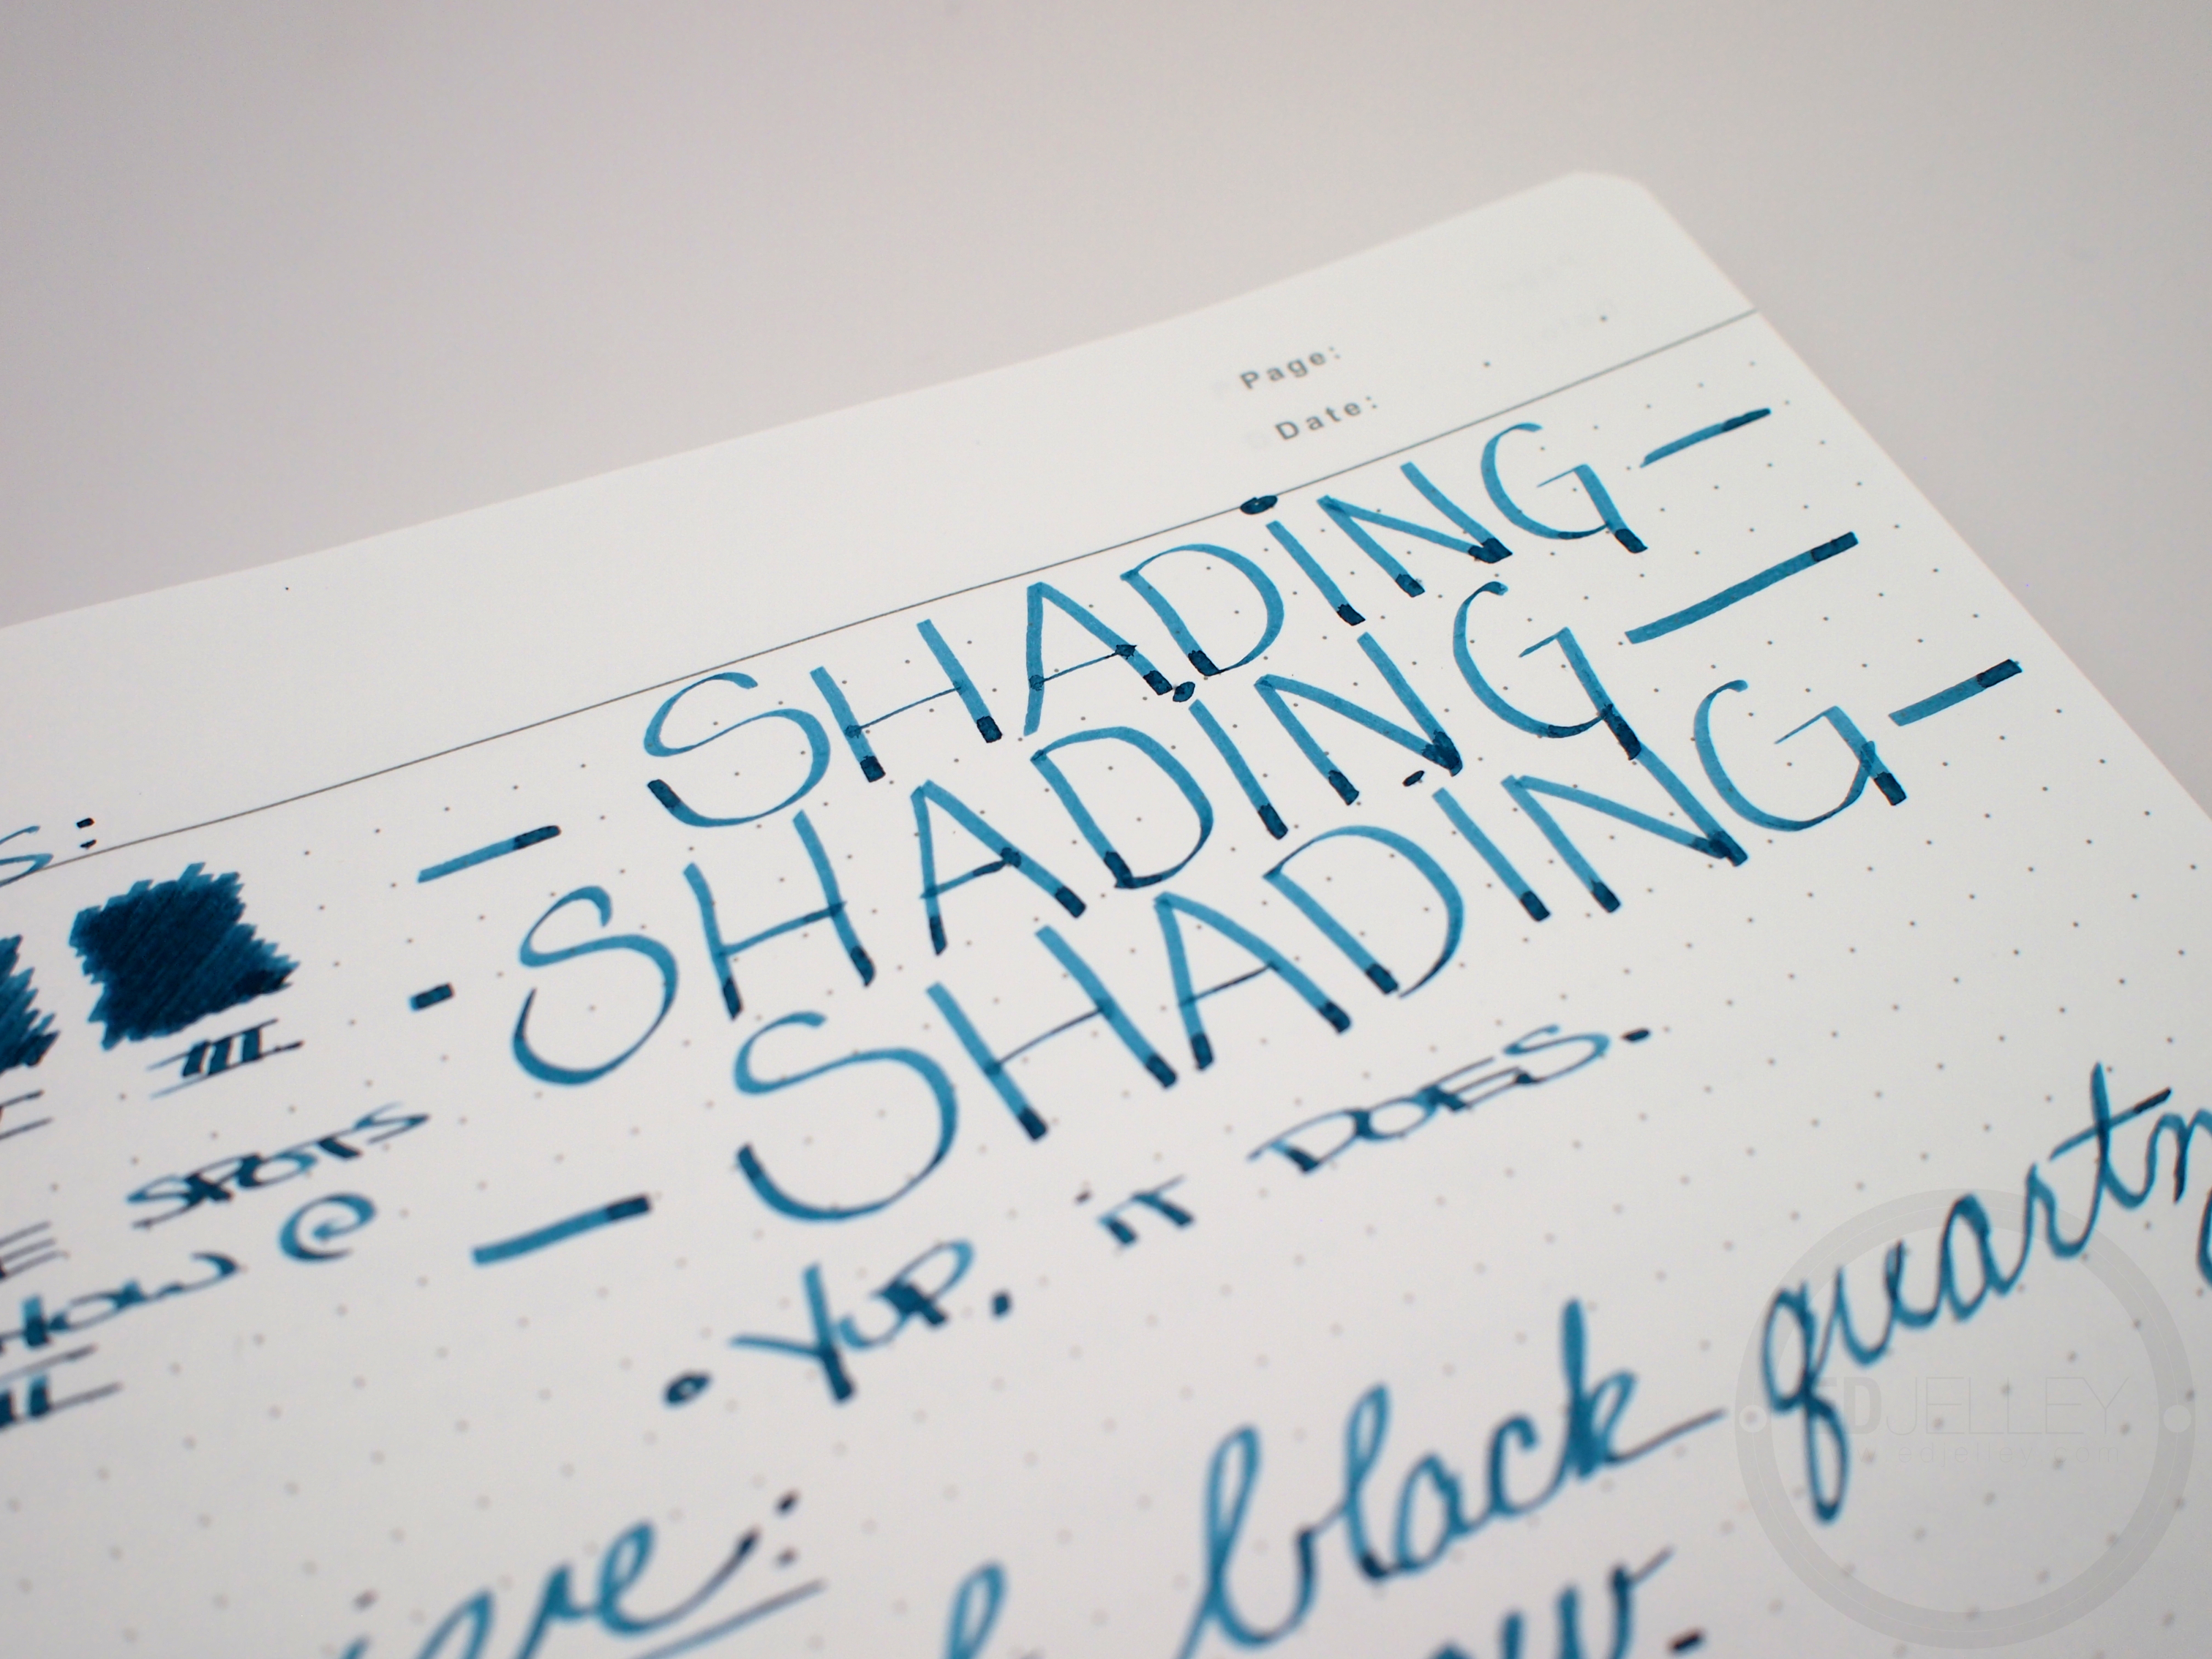 Page:
Date:
S:
— SHADING —
- SHADING —
— SHADING —
III
• YUP. IT DOES.
SPOTS
HOW @
II
black quartz
EDJELLEY